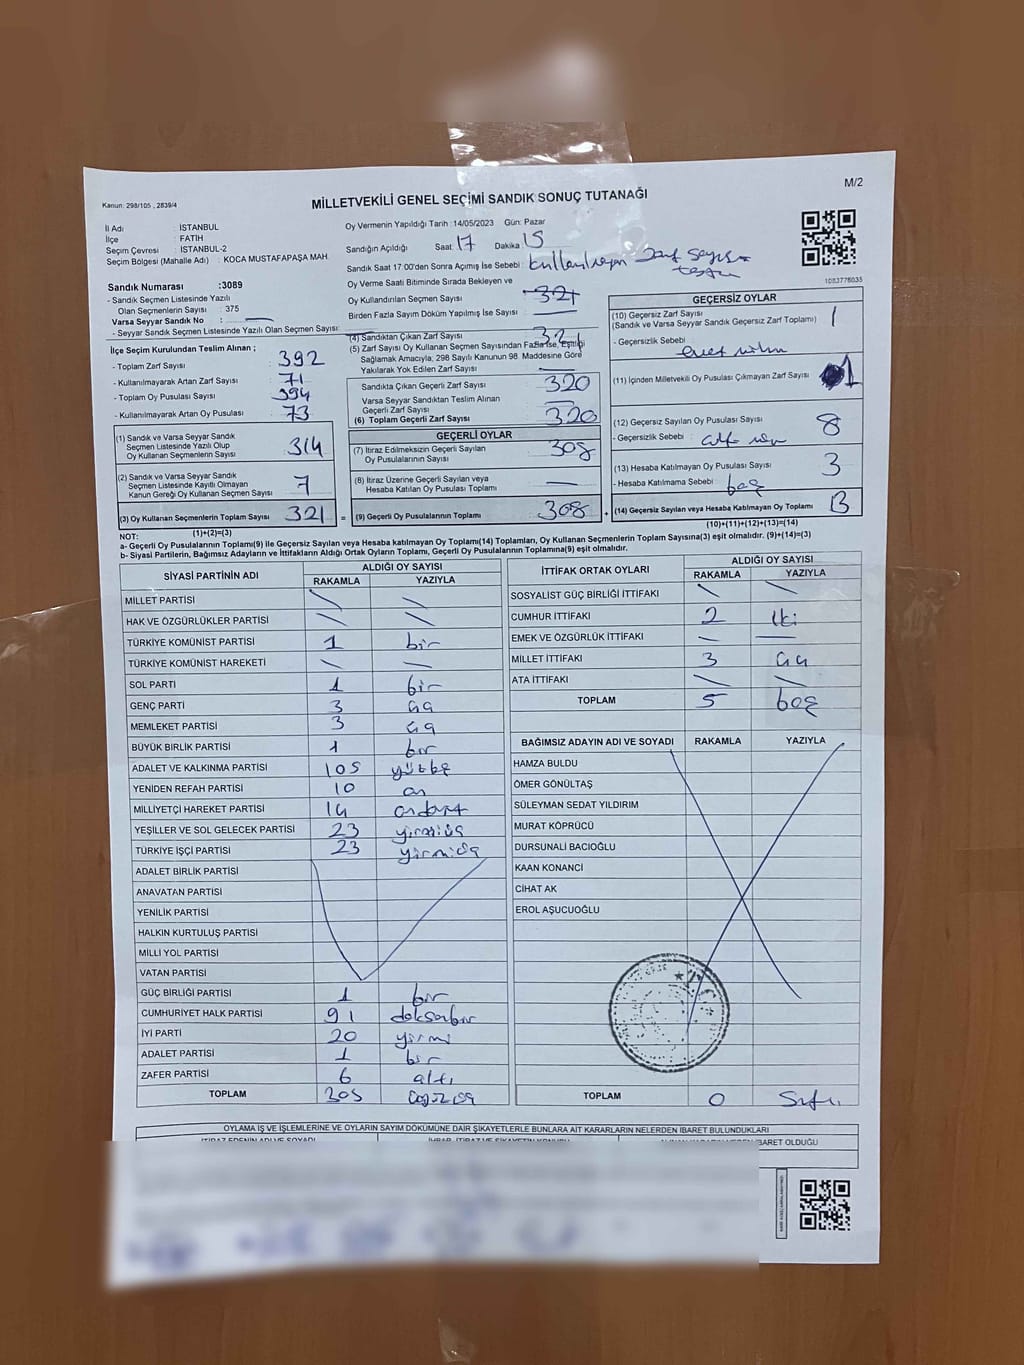 M/2
Kanun: 298/105 , 2839/4
MİLLETVEKİLİ GENEL SEÇİMİ SANDIK SONUÇ TUTANAĞI
İl Adı : İSTANBUL
İlçe : FATİH
Seçim Çevresi : İSTANBUL-2
Seçim Bölgesi (Mahalle Adı) : KOCA MUSTAFAPAŞA MAH.
Oy Vermenin Yapıldığı Tarih : 14/05/2023 Gün: Pazar
Sandığın Açıldığı Saat: 17 Dakika : 15
Sandık Saat 17:00'den Sonra Açmış İse Sebebi : Kullanılmayan zarf sayısı
Sandık Numarası : 3089
- Sandık Seçmen Listesinde Yazılı
Olan Seçmenlerin Sayısı : 375
Varsa Seyyar Sandık No :
- Seyyar Sandık Seçmen Listesinde Yazılı Olan Seçmen Sayısı:
Oy Verme Saati Bitiminde Sırada Bekleyen ve
Oy Kullandırılan Seçmen Sayısı 321
Birden Fazla Sayım Döküm Yapılmış İse Sayısı :
1083776035
İlçe Seçim Kurulundan Teslim Alınan ;
- Toplam Zarf Sayısı 392
- Kullanılmayarak Artan Zarf Sayısı 71
- Toplam Oy Pusulası Sayısı 394
- Kullanılmayarak Artan Oy Pusulası 73
(1) Sandık ve Varsa Seyyar Sandık
Seçmen Listesinde Yazılı Olup
Oy Kullanan Seçmenlerin Sayısı 314
(2) Sandık ve Varsa Seyyar Sandık
Seçmen Listesinde Kayıtlı Olmayan
Kanun Gereği Oy Kullanan Seçmen Sayısı 7
(3) Oy Kullanan Seçmenlerin Toplam Sayısı 321
(4) Sandıktan Çıkan Zarf Sayısı 321
(5) Zarf Sayısı Oy Kullanan Seçmen Sayısından Fazla İse, Eşitliği
Sağlamak Amacıyla; 298 Sayılı Kanunun 98. Maddesine Göre
Yakılarak Yok Edilen Zarf Sayısı
Sandıkta Çıkan Geçerli Zarf Sayısı 320
Varsa Seyyar Sandıktan Teslim Alınan
Geçerli Zarf Sayısı
(6) Toplam Geçerli Zarf Sayısı 320
GEÇERLİ OYLAR
(7) İtiraz Edilmeksizin Geçerli Sayılan
Oy Pusulalarının Sayısı 308
(8) İtiraz Üzerine Geçerli Sayılan veya
Hesaba Katılan Oy Pusulası Toplamı
= (9) Geçerli Oy Pusulalarının Toplamı 308
GEÇERSİZ OYLAR
(10) Geçersiz Zarf Sayısı 1
(Sandık ve Varsa Seyyar Sandık Geçersiz Zarf Toplamı)
- Geçersizlik Sebebi
(11) İçinden Milletvekili Oy Pusulası Çıkmayan Zarf Sayısı 1
(12) Geçersiz Sayılan Oy Pusulası Sayısı 8
- Geçersizlik Sebebi :
(13) Hesaba Katılmayan Oy Pusulası Sayısı 3
- Hesaba Katılmama Sebebi : boş
+ (14) Geçersiz Sayılan veya Hesaba Katılmayan Oy Toplamı 13
(1)+(2)=(3)
(10)+(11)+(12)+(13)=(14)
NOT:
a- Geçerli Oy Pusulalarının Toplamı(9) ile Geçersiz Sayılan veya Hesaba Katılmayan Oy Toplamı(14) Toplamları, Oy Kullanan Seçmenlerin Toplam Sayısına(3) eşit olmalıdır. (9)+(14)=(3)
b- Siyasi Partilerin, Bağımsız Adayların ve İttifakların Aldığı Ortak Oyların Toplamı, Geçerli Oy Pusulalarının Toplamına(9) eşit olmalıdır.
SİYASİ PARTİNİN ADI ALDIĞI OY SAYISI
RAKAMLA YAZIYLA
MİLLET PARTİSİ
HAK VE ÖZGÜRLÜKLER PARTİSİ
TÜRKİYE KOMÜNİST PARTİSİ 1 bir
TÜRKİYE KOMÜNİST HAREKETİ
SOL PARTİ 1 bir
GENÇ PARTİ 3 üç
MEMLEKET PARTİSİ 3 üç
BÜYÜK BİRLİK PARTİSİ 1 bir
ADALET VE KALKINMA PARTİSİ 105 yüzbeş
YENİDEN REFAH PARTİSİ 10 on
MİLLİYETÇİ HAREKET PARTİSİ 14 ondört
YEŞİLLER VE SOL GELECEK PARTİSİ 23 yirmiüç
TÜRKİYE İŞÇİ PARTİSİ 23 yirmiüç
ADALET BİRLİK PARTİSİ
ANAVATAN PARTİSİ
YENİLİK PARTİSİ
HALKIN KURTULUŞ PARTİSİ
MİLLİ YOL PARTİSİ
VATAN PARTİSİ
GÜÇ BİRLİĞİ PARTİSİ 1 bir
CUMHURİYET HALK PARTİSİ 91 doksanbir
İYİ PARTİ 20 yirmi
ADALET PARTİSİ 1 bir
ZAFER PARTİSİ 6 altı
TOPLAM 303 üçyüzüç
İTTİFAK ORTAK OYLARI ALDIĞI OY SAYISI
RAKAMLA YAZIYLA
SOSYALİST GÜÇ BİRLİĞİ İTTİFAKI
CUMHUR İTTİFAKI 2 iki
EMEK VE ÖZGÜRLÜK İTTİFAKI
MİLLET İTTİFAKI 3 üç
ATA İTTİFAKI
TOPLAM 5 beş
BAĞIMSIZ ADAYIN ADI VE SOYADI RAKAMLA YAZIYLA
HAMZA BULDU
ÖMER GÖNÜLTAŞ
SÜLEYMAN SEDAT YILDIRIM
MURAT KÖPRÜCÜ
DURSUNALİ BACIOĞLU
KAAN KONANCİ
CİHAT AK
EROL AŞUCUOĞLU
TOPLAM 0 Sıfır
OYLAMA İŞ VE İŞLEMLERİNE VE OYLARIN SAYIM DÖKÜMÜNE DAİR ŞİKAYETLERLE BUNLARA AİT KARARLARIN NELERDEN İBARET BULUNDUKLARI
İBARET OLDUĞU